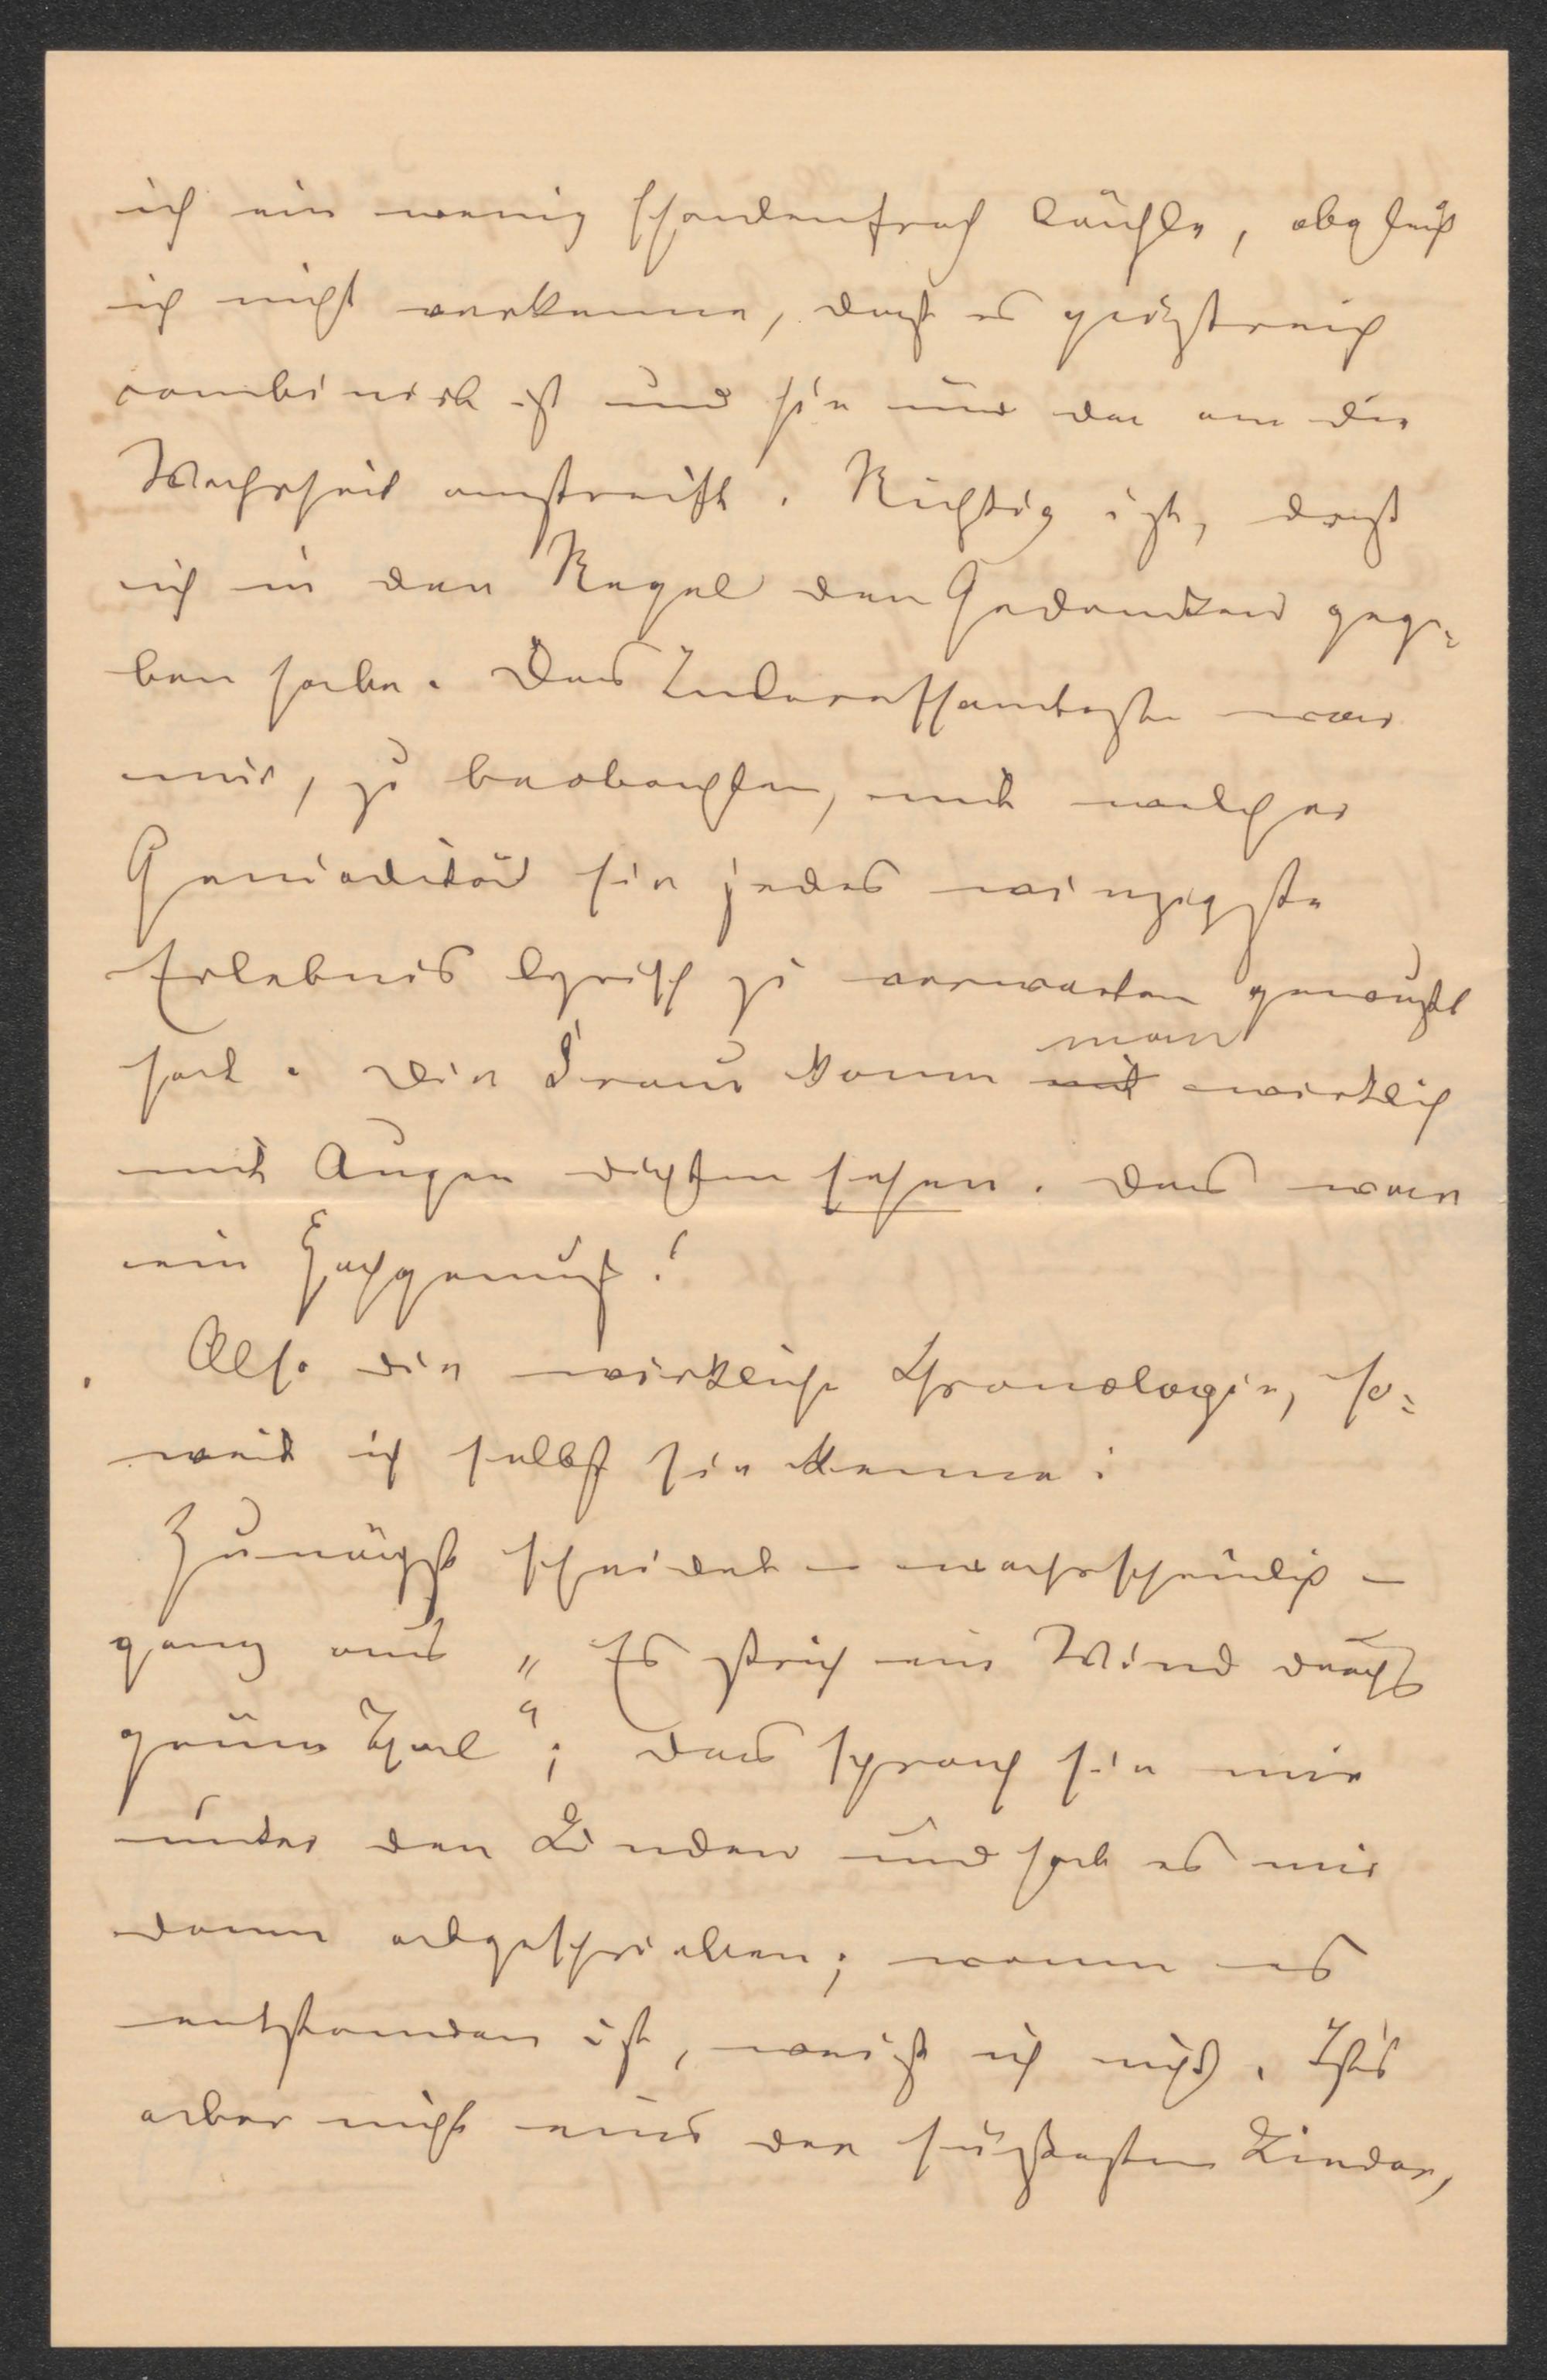 ich ein wenig schadenfroh lächle, obgleich
ich nicht verkenne, daß es geistreich
combinirt ist und hie und da an die
Wahrheit anstreift. Richtig ist, daß
ich in der Regel den Gedanken gege=
ben habe. Das Interessanteste war
mir, zu beobachten, mit welcher
Genialität sie jedes winzigste
Erlebnis lyrisch zu verwerten gewußt
hat. Die Frau kann mit man wirklich
mit Augen dichten sehen. Das war
ein Hochgenuß!
Also die wirkliche Chronologie, so=
weit ich selbst sie kenne:
Zunächst scheidet – wahrscheinlich –
ganz aus „Es strich ein Wind durchs
grüne Thal“; das sprach sie mir
unter den Linden und hat es mir
dann abgeschrieben; wann es
entstanden ist, weiß ich nicht. Ists
aber nicht eins der süßesten Lieder,